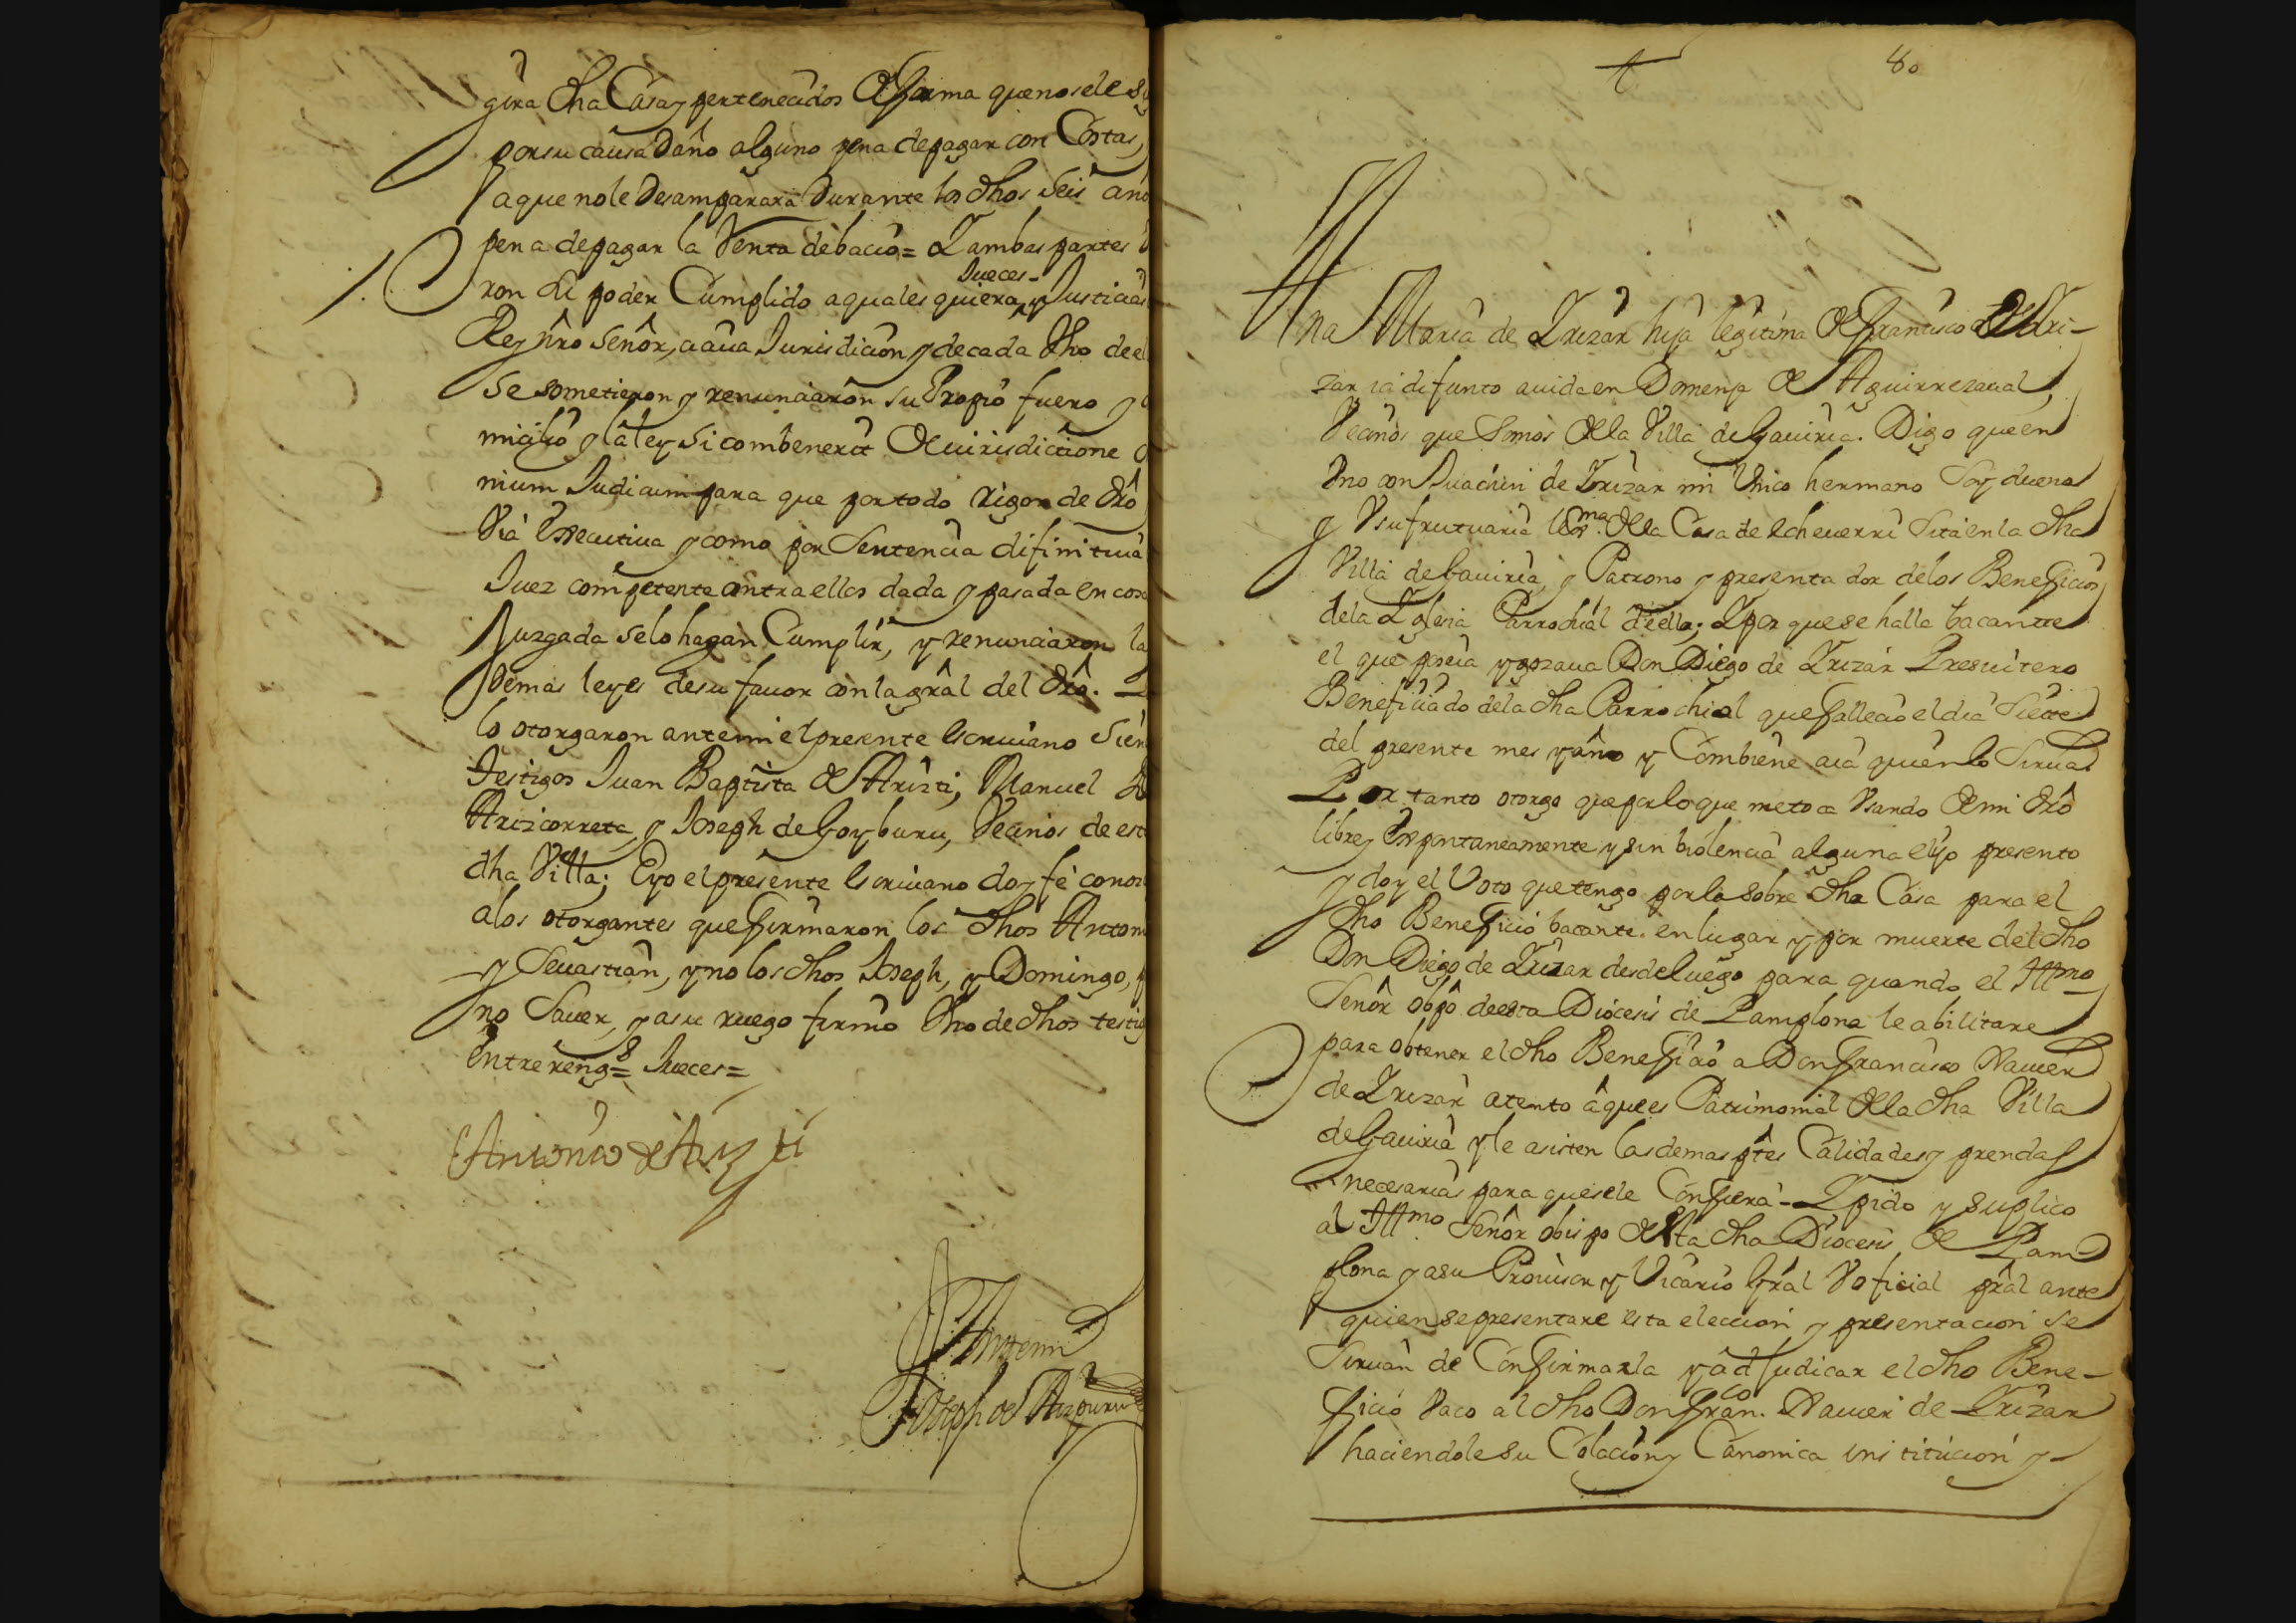 gira dha Casa y pertenecidos de forma que no se le si
por su causa daño alguno pena de pagar con Costas,
a que no le desamparara durante los dhos seis año
pena de pagar la Renta debacio = Y ambas partes
ron di poder Cumplido a quales quiera Jueces - y Justicias
Rey nro señor, a cuia Jurisdicion y de cada Uno de el
se sometieron y renunciaron su Propio fuero y
micilio y la ley si combenerit de iurisdictione
nium Judicum para que por todo rigor de dro
Via executiua y como por Sentencia difinitiua
Juez competente contra ellos dada y pasada en cosa
Juzgada se lo hagan Cumplir, y renunciaron la
demas leyes de su fauor con la gral del dro. Y
lo otorgaron ante mi el presente escriuano sien
testigos Juan Baptista de Aristi, Manuel
Arizcorreta, y Joseph de Goyburu, Vecinos de est
dha Villa; E yo el presente escriuano doy fe conoz
a los otorgantes que firmaron los dhos Anton
y Seuastian, y no los dhos Joseph, y Domingo,
no Sauer, y a su ruego firmo Uno de dhos testig
entrereng.s = Jueces =
Antonio de Arizti
Ante mi
Joseph de Aizpuru
80
Ana Maria de Yrizar hija legitima de Francisco de Yri-
zar ia difunto auida en Domenja de Aguirrezaual,
Vecinos que Somos de la Villa de Gauiria. Digo que en
Uno con Juachin de Yrizar mi Unico hermano Soy duena
y Usufrutuaria lexma. de la Casa de echeuerri Sita en la dha
Villa de Gauiria, y Patrono y presentador de los Beneficios
de la Yglesia Parrochial de ella; Y por que se halla bacante
el que poseia y gozaua Don Diego de Yrizar Presuitero
Beneficiado de la dha Parrochial que fallecio el dia Siete
del presente mes y año y Combiene aia quien lo Sirua.
Por tanto otorgo que por lo que me toca Usando de mi dro
libre y espontaneamente y sin biolencia alguna elijo presento
y doy el Voto que tengo por la sobre dha Casa para el
dho Beneficio bacante en lugar y por muerte del dho
Don Diego de Yrizar desde luego para quando el Illmo
Señor obpo de esta Diocesis de Pamplona le abilitare
para obtener el dho Beneficio a Don Francisco Xauier
de Yrizar atento a que es Patrimonial de la dha Villa
de Gauiria y le asisten las demas ptes Calidades y prendas
necesarias para que se le Confiera - Y pido y suplico
al Illmo Señor obispo de esta dha Diocesis de Pam
plona y a su Prouisor y Vicario Gral V oficial pral ante
quien se presentare esta eleccion y presentacion se
Siruan de Confirmarla y adjudicar el dho Bene-
ficio Vaco al dho Don Franco. Xauier de Yrizar
haciendole su Colacion y Canonica institucion y -